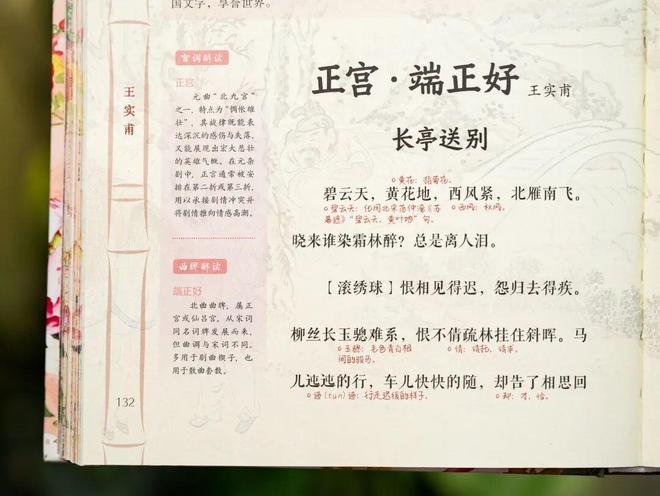 国文字，享誉世界。
王实甫
宫调解读
正宫
元曲“北九宫”
之一，特点为“惆怅雄
壮”，其旋律既能表
达深沉的感伤与失落，
又能展现出宏大悲壮
的英雄气概。在元杂
剧中，正宫通常被安
排在第二折或第三折，
用以承接剧情冲突并
将剧情推向情感高潮。
曲牌解读
端正好
北曲曲牌，属正
宫或仙吕宫。从宋词
同名词牌发展而来，
但曲调与宋词不同。
多用于剧曲楔子，也
用于散曲套数。
132
正宫·端正好 王实甫
长亭送别
黄花：指菊花。
碧云天，黄花地，西风紧，北雁南飞。
碧云天：化用北宋范仲淹《苏 西风：秋风。
幕遮》“碧云天，黄叶地”句。
晓来谁染霜林醉？总是离人泪。
【滚绣球】恨相见得迟，怨归去得疾。
柳丝长玉骢难系，恨不倩疏林挂住斜晖。马
玉骢：毛色青白相 倩：请托，请求。
间的骏马。
儿迍迍的行，车儿快快的随，却告了相思回
迍(tun)迍：行走迟缓的样子。 却：才，恰。